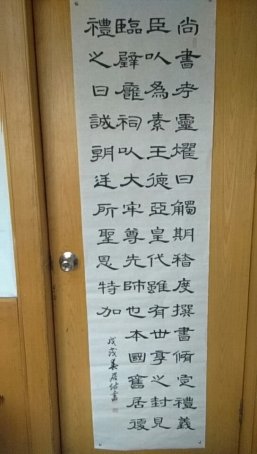 尚書考靈燿曰觸期稽度撰書脩定禮義
臣以為素王德亞皇代雖有世享之封見
臨璧雍祠以大牢尊先師也本國舊居復
禮之日誠朝廷所聖恩特加
戊戌 書